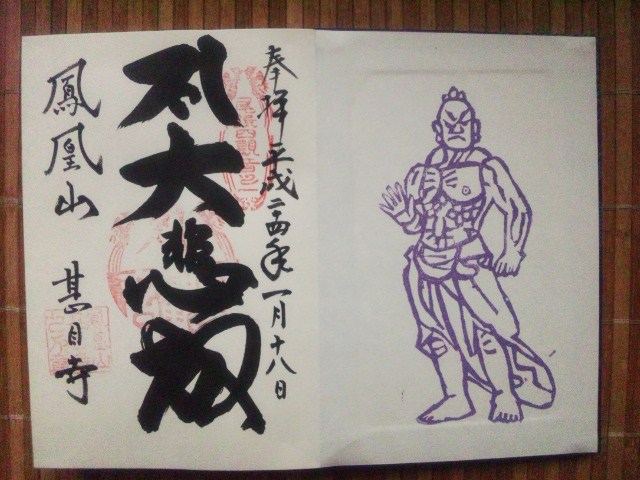 奉拝 平成二四年一月十八日
大悲殿
鳳凰山 甚目寺